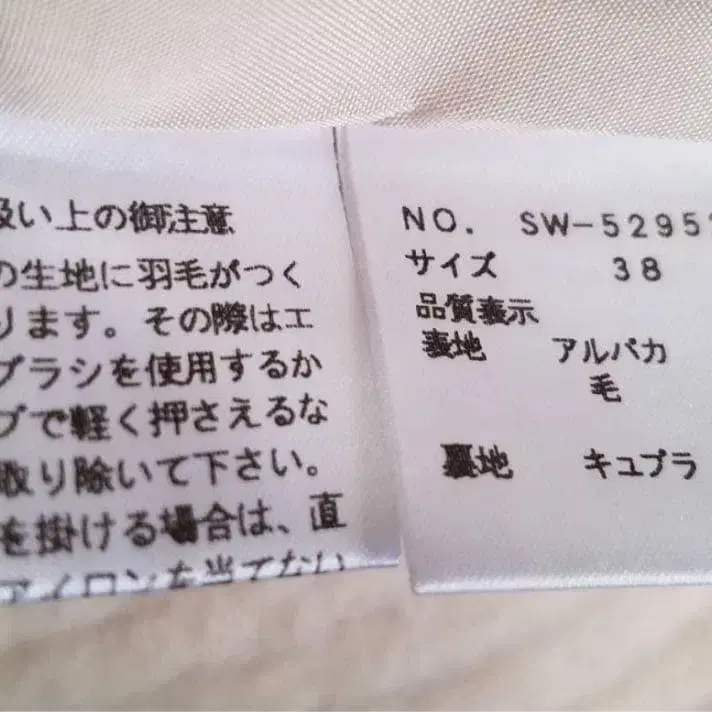 扱い上の御注意
の生地に羽毛がつく
ります。その際はエ
ブラシを使用するか
プで軽く押さえるな
取り除いて下さい。
を掛ける場合は、直
アイロンを当てない
NO. SW-5295
サイズ 38
品質表示
表地 アルパカ
毛
裏地 キュプラ